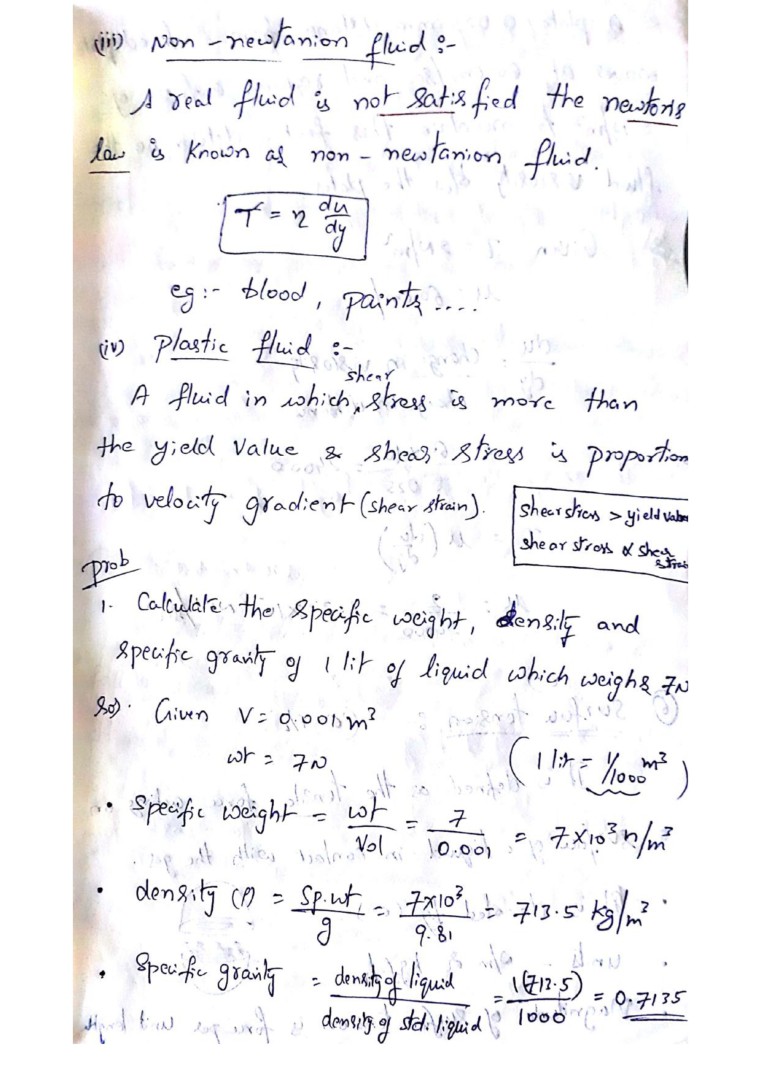 (iii) Non-newtanion fluid :-
A real fluid is not satisfied the newtons
law is known as non-newtanion fluid.
τ = η du/dy
eg:- blood, paints....
(iv) Plastic fluid :-
A fluid in which shear stress is more than
the yield value & shear stress is proportion
to velocity gradient (shear strain).
shear stress > yield value
shear stress α shear strain
prob
1. Calculate the specific weight, density and
specific gravity of 1 lit of liquid which weighs 7N
Sol. Given V = 0.001 m³
wt = 7N
(1 lit = 1/1000 m³)
• Specific weight = wt/Vol = 7/0.001 = 7×10³ n/m³
• density (ρ) = Sp.wt/g = 7×10³/9.81 = 713.5 kg/m³
• Specific gravity = density of liquid/density of std. liquid = 1(713.5)/1000 = 0.7135